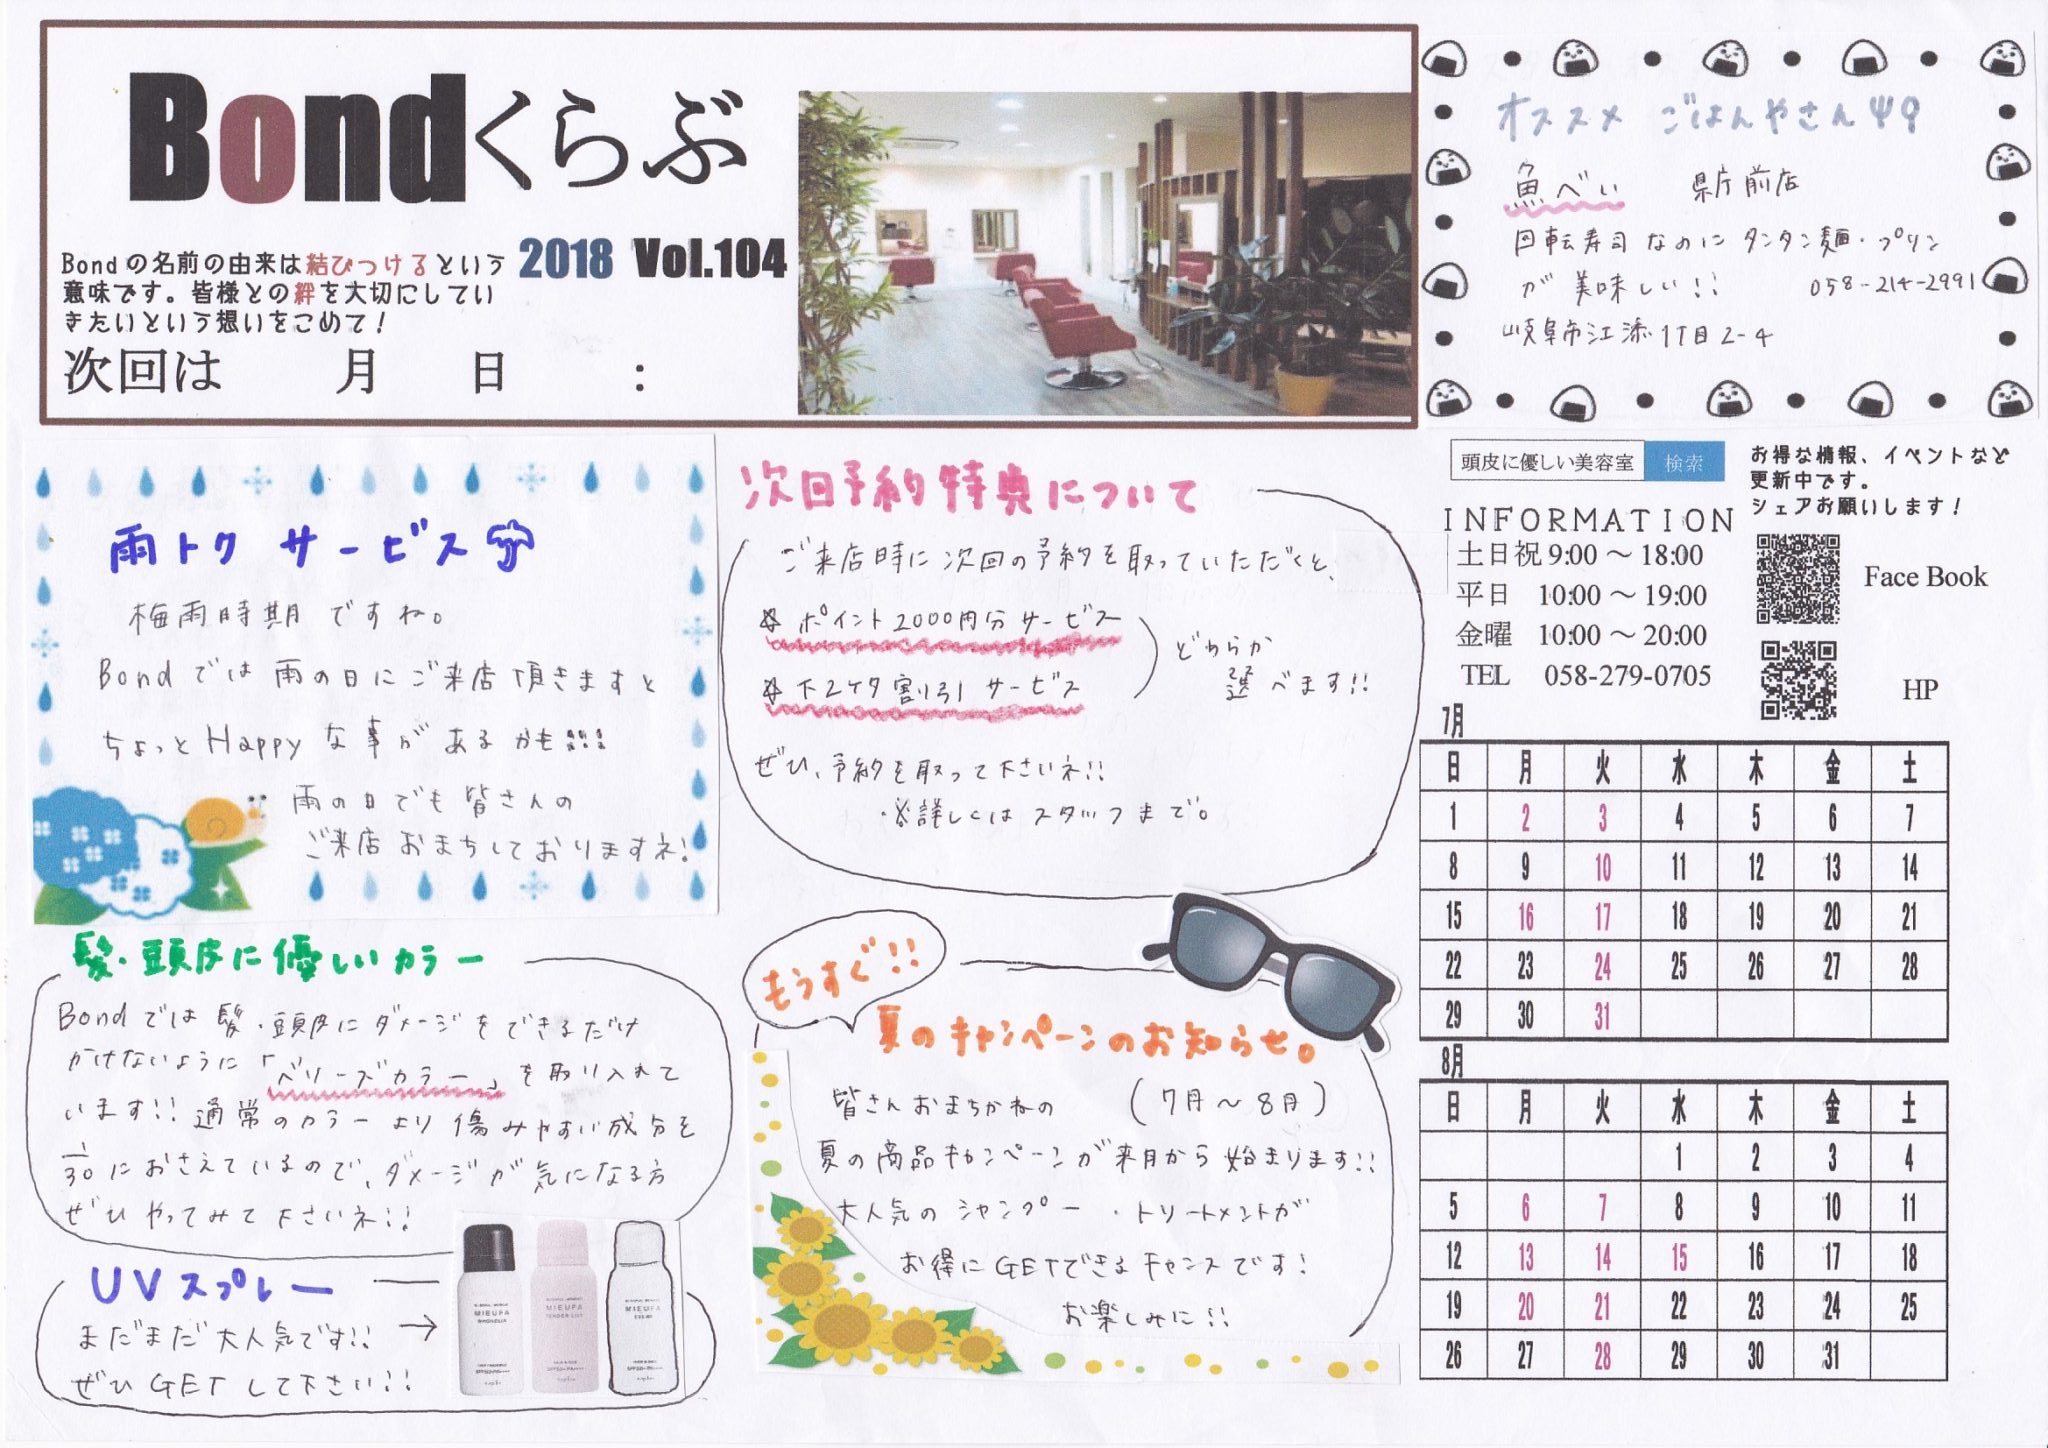 Bondくらぶ
Bondの名前の由来は結びつけるという
意味です。皆様との絆を大切にしてい
きたいという想いをこめて!
2018 Vol.104
次回は 月 日 :
オススメ ごはんやさん
魚べい 県庁前店
回転寿司なのにタンタン麺・プリン
が美味しい!!
058-214-2991
岐阜市江添1丁目2-4
雨トク サービス
梅雨時期ですね。
Bondでは雨の日にご来店頂きますと
ちょっとHappyな事があるかも!!!
雨の日でも皆さんの
ご来店おまちしておりますネ!
次回予約特典について
ご来店時に次回の予約を取っていただくと、
☆ ポイント2000円分サービス
☆ 下2ケタ割引サービス
どちらか
選べます!!
ぜひ、予約を取って下さいネ!!
※詳しくはスタッフまで。
頭皮に優しい美容室 検索
お得な情報、イベントなど
更新中です。
シェアお願いします!
INFORMATION
土日祝 9:00 ~ 18:00
平日 10:00 ~ 19:00
金曜 10:00 ~ 20:00
TEL 058-279-0705
Face Book
HP
髪・頭皮に優しいカラー
Bondでは髪・頭皮にダメージをできるだけ
かけないように「ベリーズカラー」を取り入れて
います!!通常のカラーより傷みやすい成分を
1/30におさえているので、ダメージが気になる方
ぜひやってみて下さいネ!!
UVスプレー
まだまだ大人気です!! →
ぜひGETして下さい!!
MIEUFA
MIEUFA
MIEUFA
もうすぐ!!
夏のキャンペーンのお知らせ。
皆さんおまちかねの (7月~8月)
夏の商品キャンペーンが来月から始まります!!
大人気のシャンプー・トリートメントが
お得にGETできるチャンスです!
お楽しみに!!
7月
日 月 火 水 木 金 土
1 2 3 4 5 6 7
8 9 10 11 12 13 14
15 16 17 18 19 20 21
22 23 24 25 26 27 28
29 30 31
8月
日 月 火 水 木 金 土
1 2 3 4
5 6 7 8 9 10 11
12 13 14 15 16 17 18
19 20 21 22 23 24 25
26 27 28 29 30 31